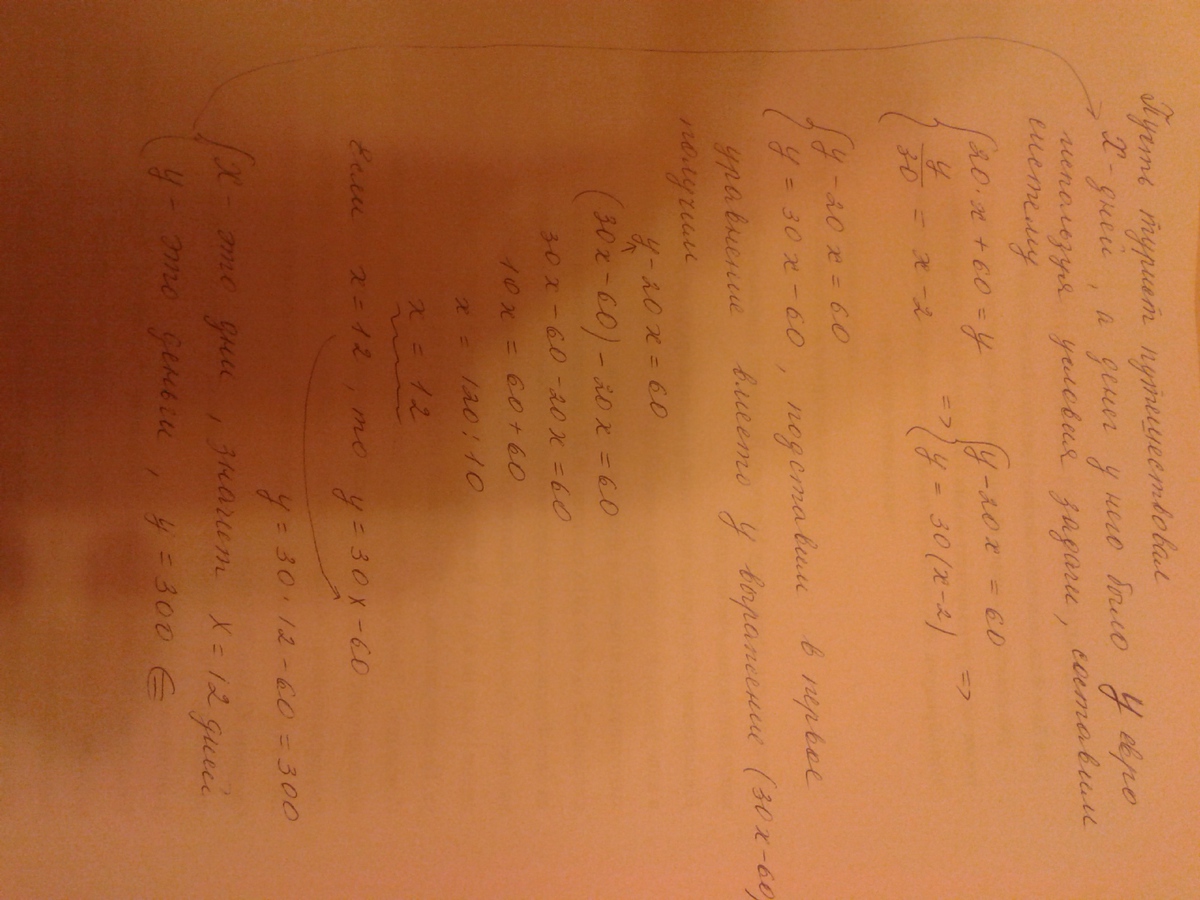 Пусть турист путешествовал
x - дней, а денег у него было y евро
используя условия задачи, составим
систему
{20·x+60=y => {y-20x=60 =>
{y/30 = x-2 {y=30(x-2)
{y-20x=60
{y=30x-60, подставим в первое
уравнение вместо y выражение (30x-60)
получим
y-20x=60
(30x-60)-20x=60
30x-60-20x=60
10x=60+60
x=120:10
x=12
если x=12, то y=30x-60
y=30·12-60=300
{x-это дни, значит x=12 дней
{y-это деньги, y=300 €